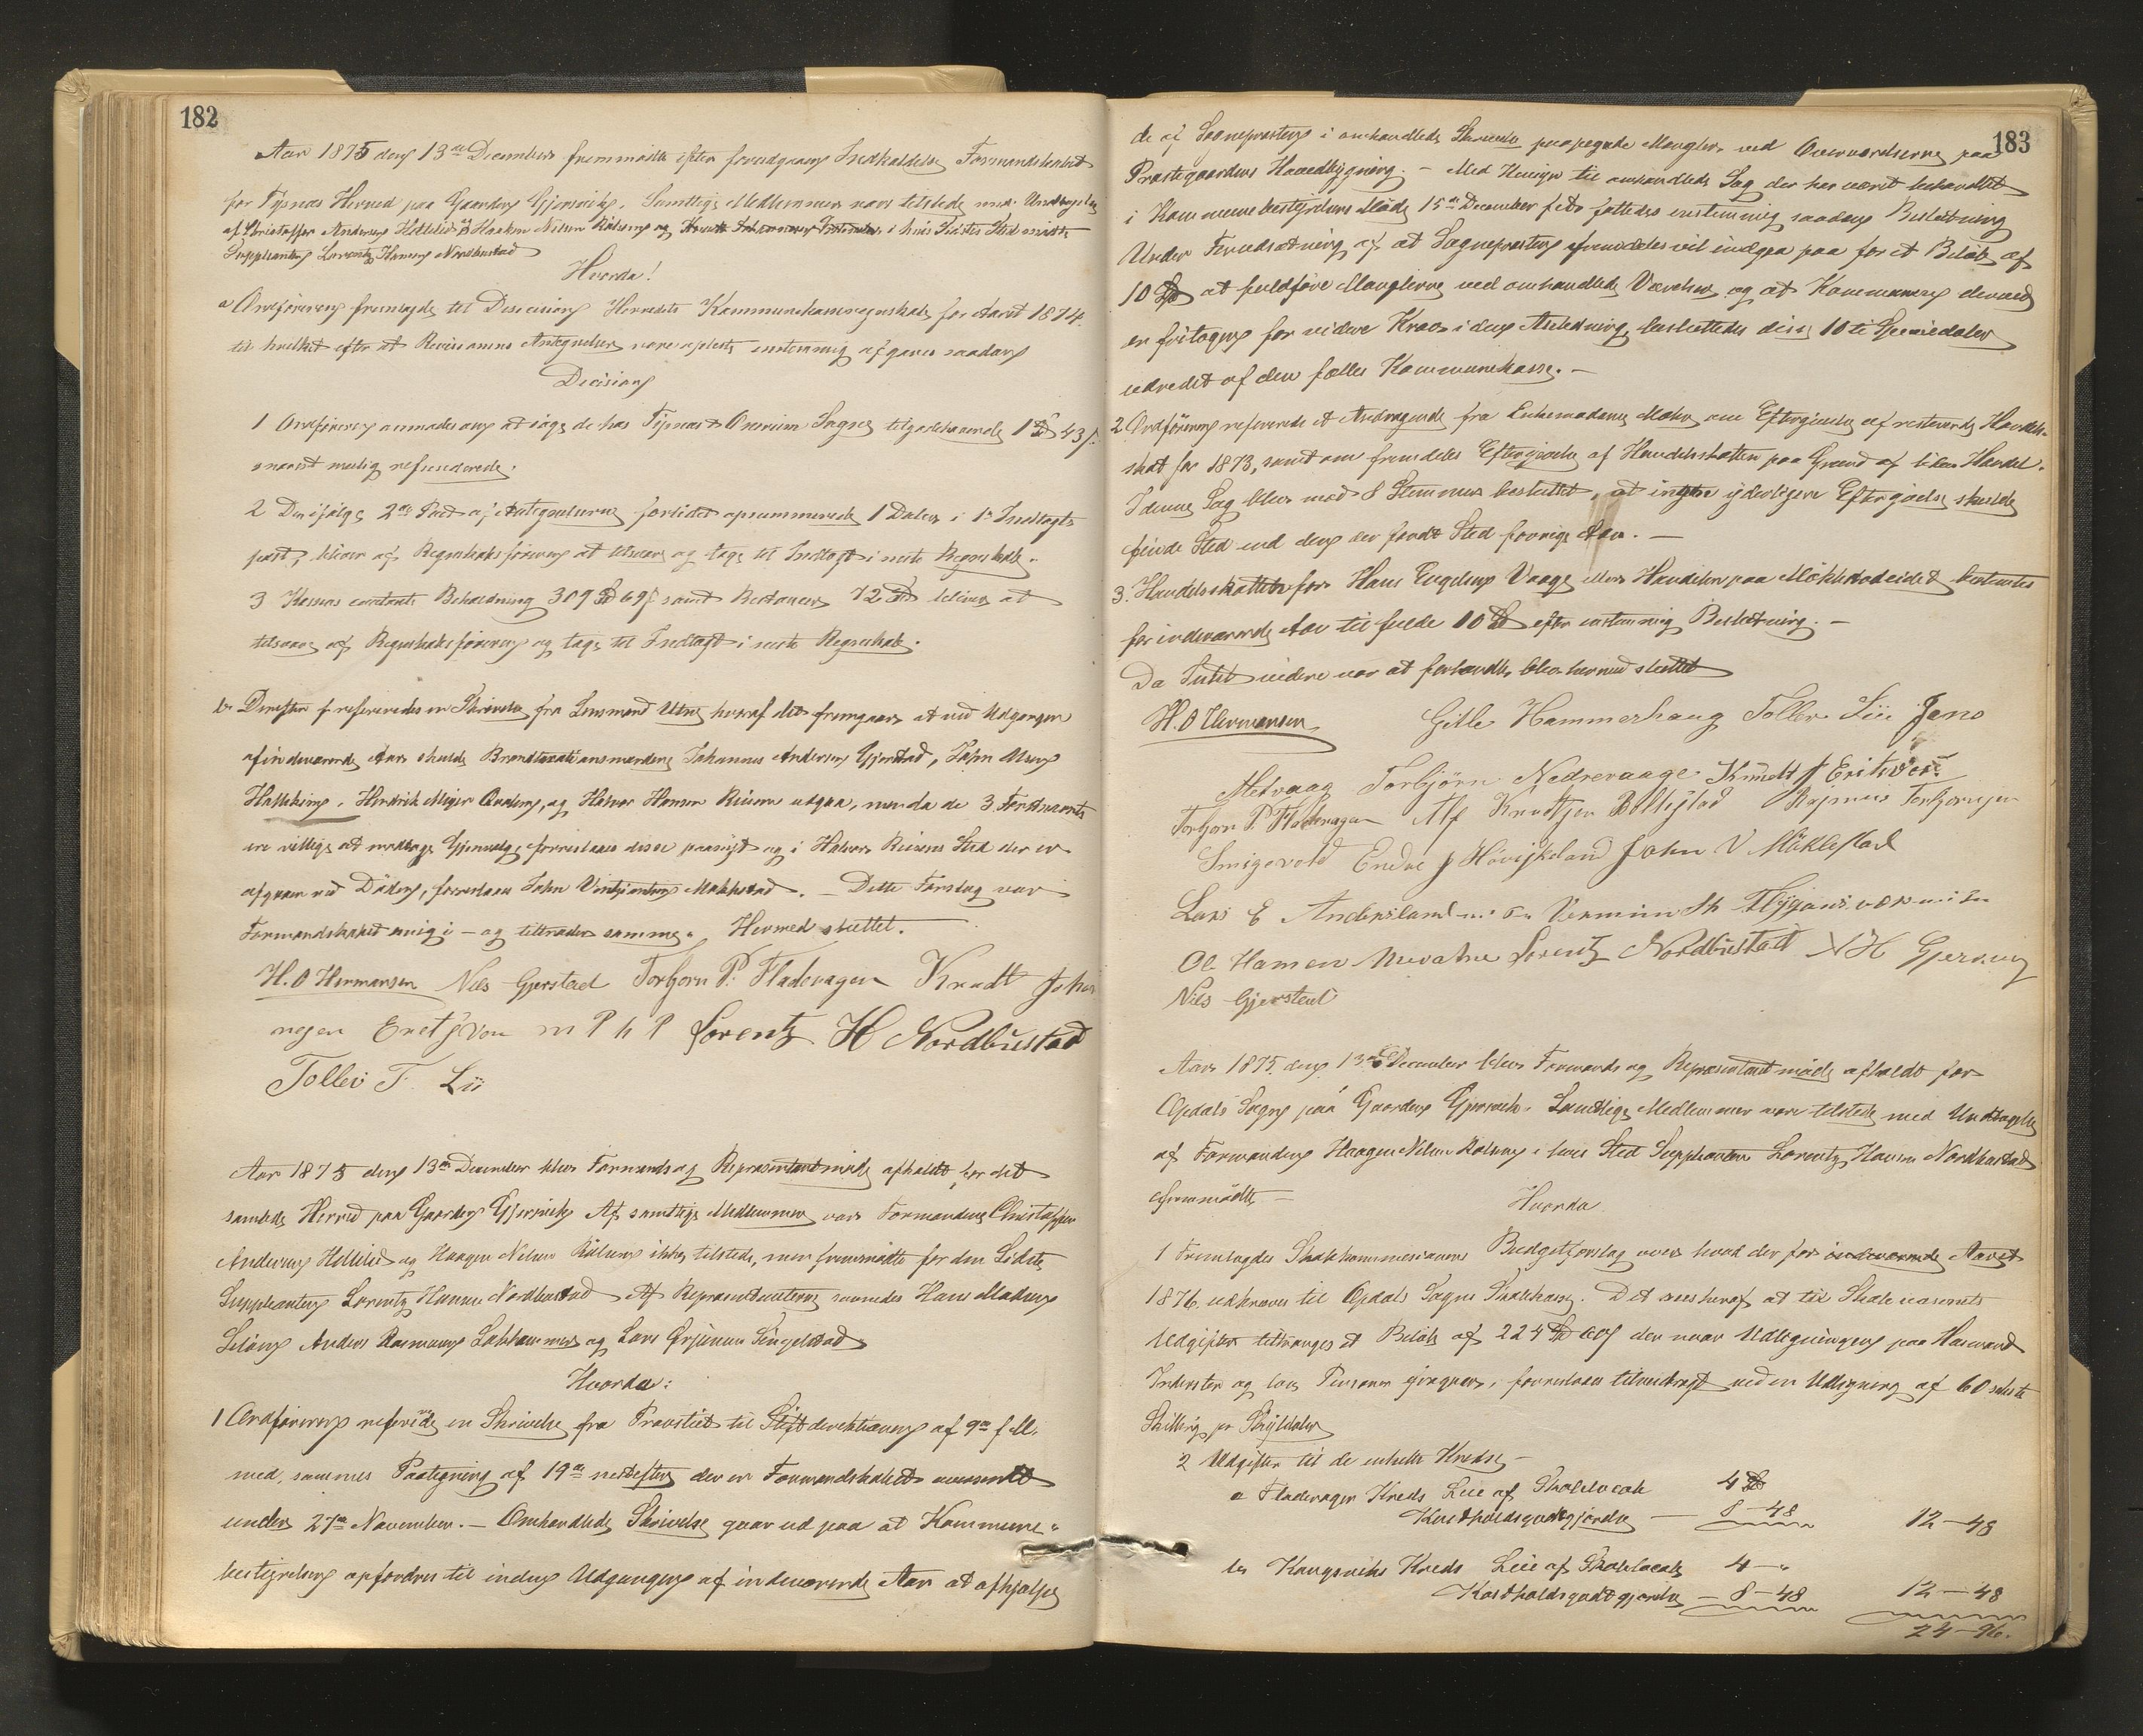 182
Aar 1875 den 13de December fremmødte efter foregaaende Indkaldelse Formandskabet
for Tysnæs Herred paa Gaarden Gjersvik. Samtlige Medlemmer vare tilstede med Undtagelse
af Christoffer Andersen Hollelid og Haaken Nilsen Rølvaag i hvis Sidstes Sted mødte
Suppleanten Lorentz Hansen Nordbustad
Hvorda!
a Ordføreren fremlagde til Decision Herredets Kommunekasseregnskab for Aaret 1874
til hvilket efter at Revisionens Antegnelser vare oplæste enstemmig afgaves saadan
Decision
1 Ordføreren anmodes om at søge de hos Tysnæs og Onarim Sogne tilgodehavende 1 Spd 43 s.
snarest mulig refunderede.
2 Den ifølge 2den Post af Antegnelserne forlidet opsummerede 1 Daler i 1ste Indtægts
post, bliver af Regnskabsføreren at tilsvare og tage til Indtægt i neste Regnskab.
3 Kassens contante Beholdning 309 Spd 69 s samt Restancer 72 Spd bliver at
tilsvare af Regnskabsføreren og tage til Indtægt i neste Regnskab.
b. Derefter refereredes en Skrivelse fra Lensmand Utne hvoraf det fremgaar at ved Udgangen
af indeværende Aar skulde Brandtaxationsmændene Johannes Andersen Gjerstad, John
Hallekim, Hendrik Meyer Onarim, og Halvor Hansen Reisene udgaa, men da de 3 Førstnævnte
ere villige at modtage Gjenvalg foreslaaes disse paanyt og i Halvor Reisens Sted der er
afgaaen ved Døden, foreslaaes John Møkkestad. — Dette Forslag var
Formandskabet enig i — og tiltræder samme. Hermed sluttet.
H. O Hermansen Nils Gjerstad Torbjørn P. Fladevagen Knudt Johan
nesen m P h P Lorentz H Nordbustad
Tollev T. Lii
Aar 1875 den 13de December blev Formands og Representantmøde afholdt for det
samlede Herred paa Gaarden Gjersvik Af samtlige Medlemmer var Formændene Christoffer
Andersen Hollelid og Haagen Nilsen Rølvaag ikke tilstede, men fremmødte for den Sidste
Suppleanten Lorentz Hansen Nordbustad Af Representanterne savnedes Hans Madsen
Anders Rasmusen Løkhammer og Lars Ørjansen Singelstad
Hvorda:
1 Ordføreren refererede en Skrivelse fra Provstiet til Stiftsdirektionen af 9de f. M.
med sammes Paategning af 19de nestefter der er Formandskabet oversendt
under 27de November. — Omhandlede Skrivelse gaar ud paa at Kommune-
bestyrelsen opfordres til inden Udgangen af indeværende Aar at afhjælpe
183
de af Sognepresten i omhandlede Skrivelse paapegede Mangler ved Overværelserne paa
Prestegaardens Hovedbygning. — Med Hensyn til omhandlede Sag der har været behandlet
i Kommunebestyrelsens Møde 15de December f. A. fattedes enstemmig saadan Beslutning
Under Forudsætning af at Sognepresten fremdeles vil indgaa paa for et Beløb af
10 Spd at fuldføre Manglerne ved omhandlede Værelser og at Kommunen derved
er fritagen for videre Krav i den Anledning, besluttedes disse 10 ti Speciedaler
udredet af den fælles Kommunekasse. —
2 Ordføreren refererede et Andragende fra Enkemadame Mohr om Eftergivelse af resterende Handels-
skat for 1873, samt om fremdeles Eftergivelse af Handelsskatten paa Grund af liden Handel.
I denne Sag blev med 8 Stemmer besluttet, at ingen yderligere Eftergivelse skulde
finde Sted end den der fandt Sted forrige Aar. —
3. Handelsskatten for Hans Engelsen Vaage eller Handelen paa Møkkestadeidet bestemtes
for indeværende Aar til fulde 10 Spd efter enstemmig Beslutning. —
Da Intet videre var at forhandle, blev hermed sluttet
H. O Hermansen Gitle Hammerhaug Tollev Lii Jens
Torbjørn Nedrevaage Knudt J
Torbjørn P. Fladevagen Alf Knudtsen Rasmus Torbjørnsen
Endre J Høviskeland John V Møklestad
Lars E Andersland m
Ole Hansen Lorentz Nordbustad N H Gjersvig
Nils Gjerstad
Aar 1875 den 13de December blev Formands og Representantmøde afholdt for
Opdals Sogn paa Gaarden Gjersvik. Samtlige Medlemmer vare tilstede med Undtagelse
af Formanden Haagen Nilsen Rølvaag i hvis Sted Suppleanten Lorentz Hansen Nordbustad
fremmødte —
Hvorda
1 Fremlagdes Skolekommissionens Budgetforslag over hvad der for indeværende Aaret
1876 udkræves til Opdals Sogns Skolekasse. Det sees heraf at til Skolevæsenets
Udgifter tiltrænges et Beløb af 224 Spd der naar Udligningen paa Huusmænd
Inderster og løse Personer fragaar, foreslaaes tilveiebragt ved en Udligning af 60 sexti
Skilling pr Skylddaler
2 Udgifter til de enkelte Kredse —
a Fladevagen Kreds Leie af Skolelocale 4 Spd
Kostholdsgodtgjørelse — 8 — 48 12 — 48
b Kongsviks Kreds Leie af Skolelocale 4 — "
Kostholdsgodtgjørelse — 8 — 48 12 — 48
24 — 96.